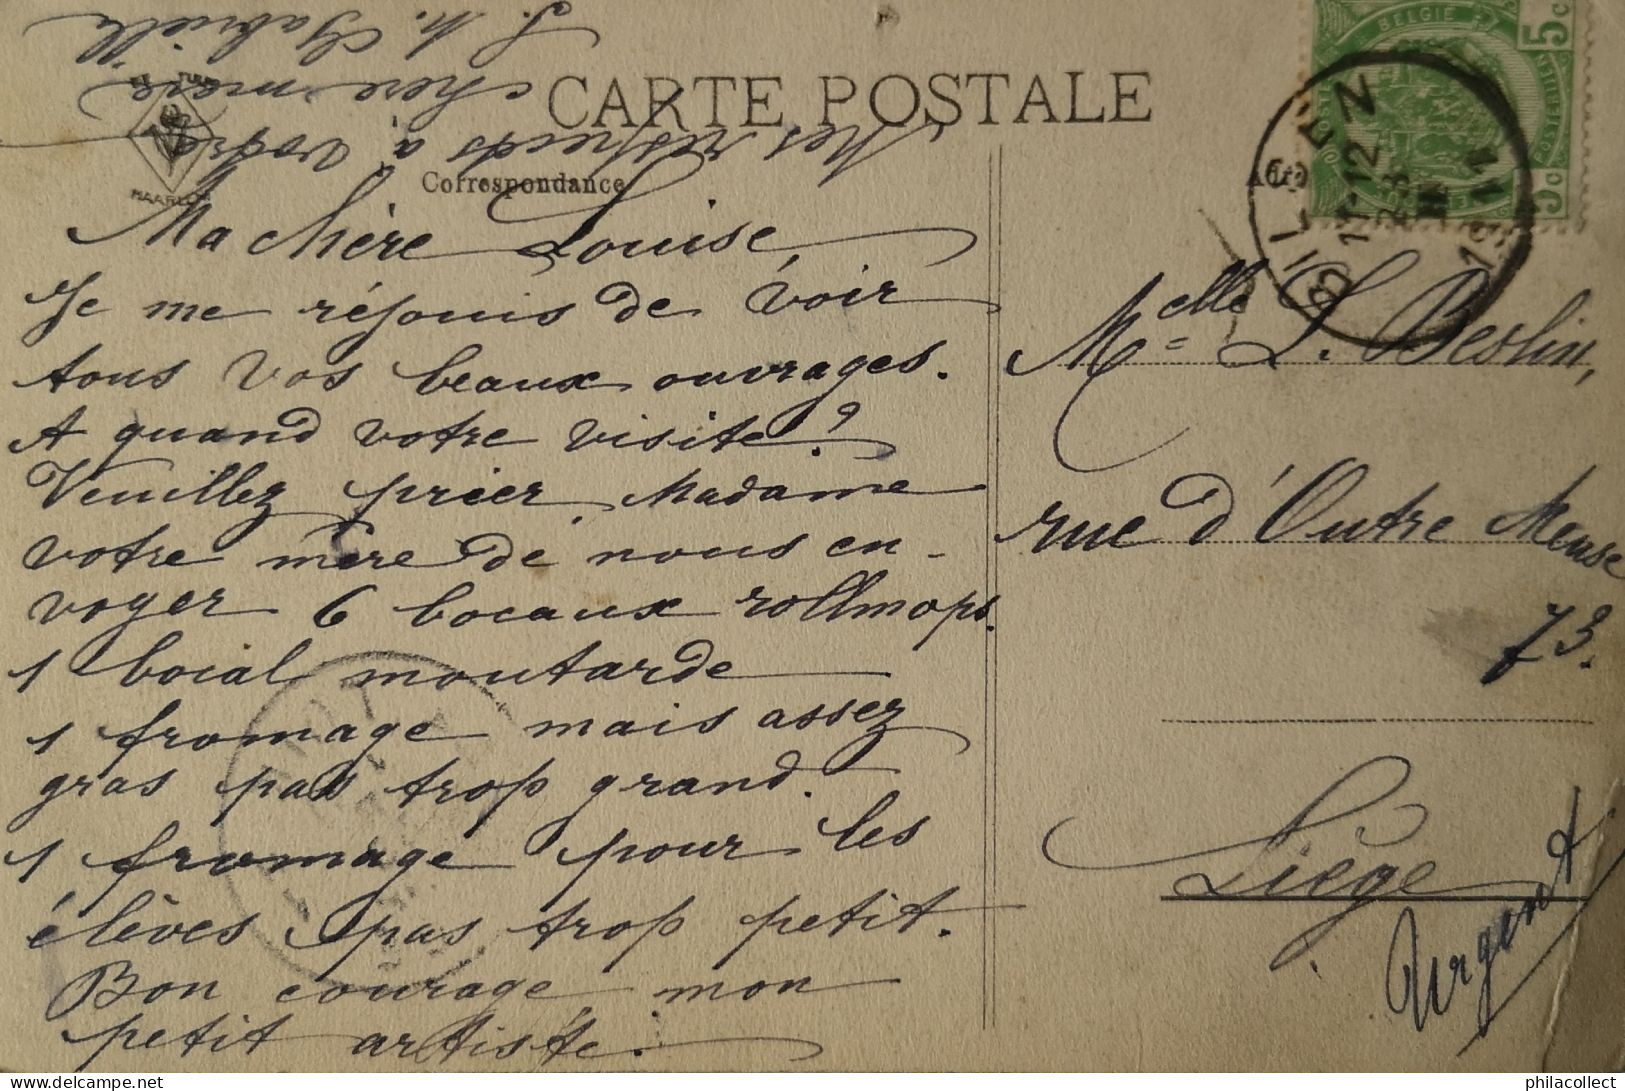 CARTE POSTALE
Correspondance
HAARLEM
Ma chère Louise,
Je me réjouis de voir
tous vos beaux ouvrages.
A quand votre visite?
Veuillez prier Madame
votre mère de nous en-
voyer 6 bocaux rollmops.
1 bocal moutarde
1 fromage mais assez
gras pas trop grand.
1 fromage pour les
élèves pas trop petit.
Bon courage mon
petit artiste.
Mes respects à votre
chère mère
S. M. Gabrielle
BELGIE
5c
5c
BILZEN
11-12
28
III
1911
Melle L. Beslin,
rue d'Outre Meuse
73.
Liège
Urgent
philacollect